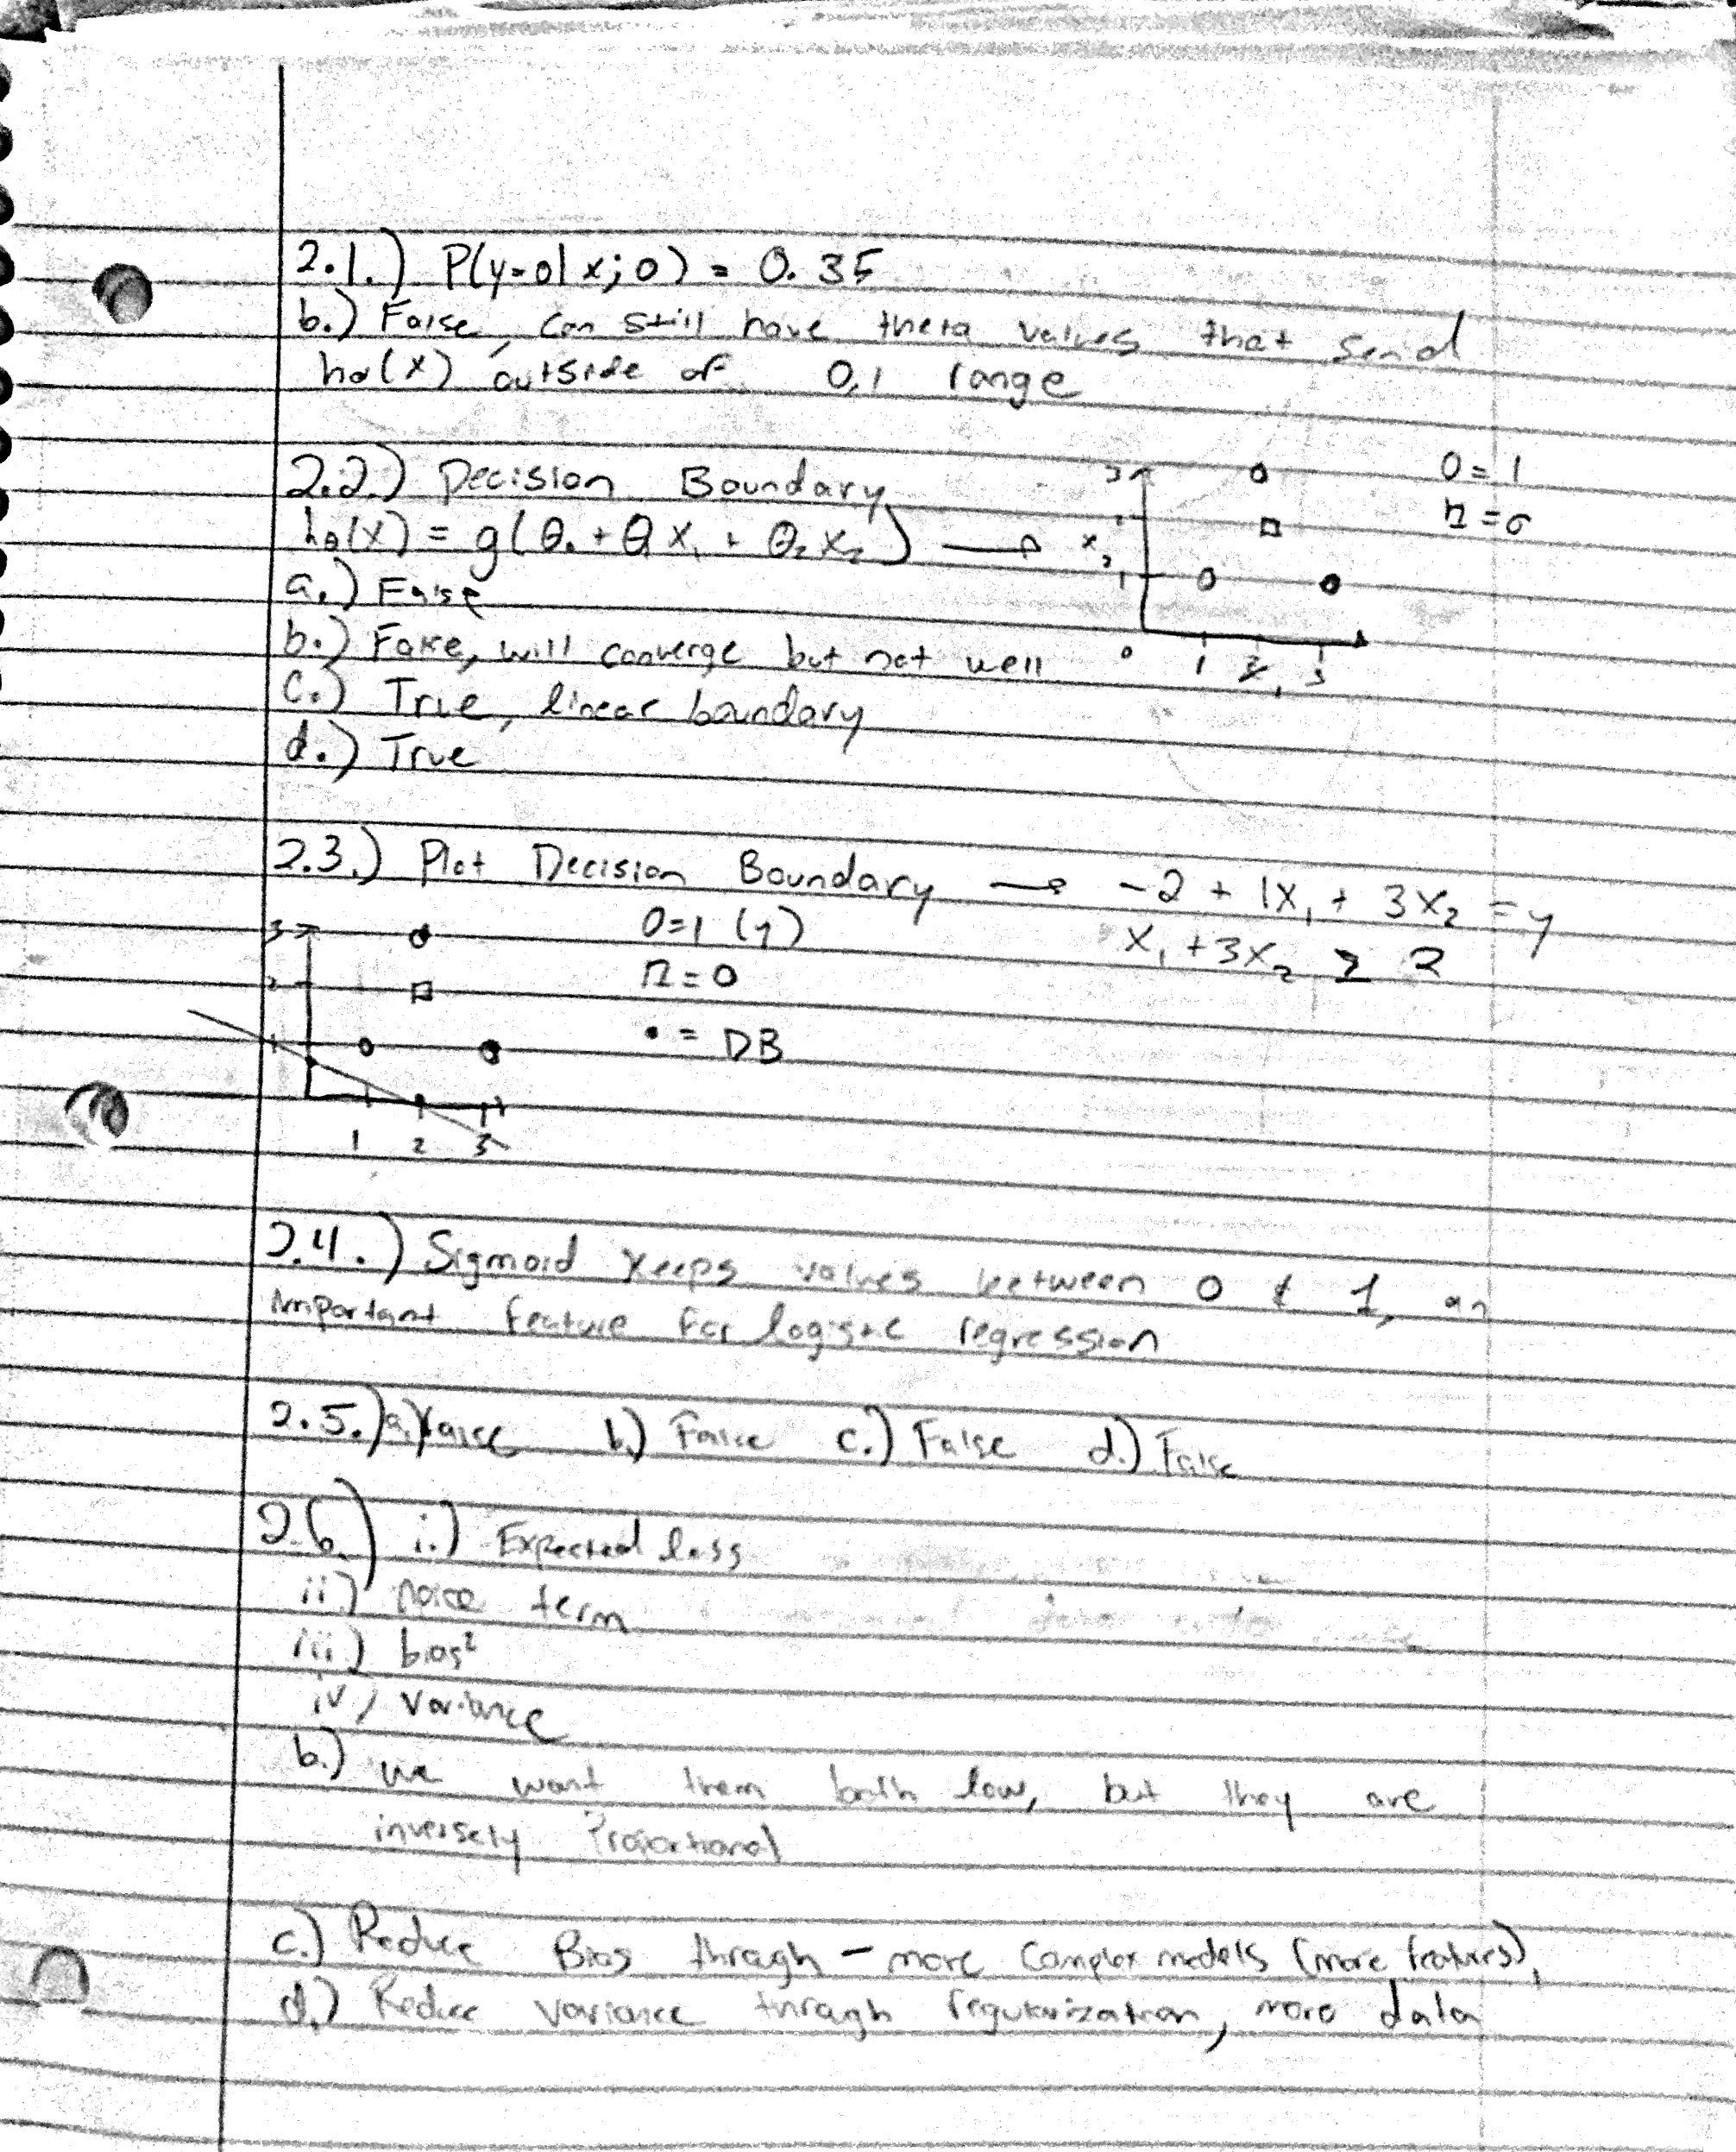 2.1.) P(y=0|x;θ) = 0.35
b.) False, can still have theta values that send
hθ(x) outside of 0,1 range
2.2.) Decision Boundary
hθ(x) = g(θ₀ + θ₁x₁ + θ₂x₂) → x₂
3
1
0 1 2 3
x₁
O = 1
□ = 0
a.) False
b.) False, will converge but not well
c.) True, linear boundary
d.) True
2.3.) Plot Decision Boundary → -2 + 1x₁ + 3x₂ = y
x₁ + 3x₂ ≥ 2
3
2
1
1 2 3
O=1 (y)
□ = 0
• = DB
2.4.) Sigmoid keeps values between 0 & 1, an
important feature for logistic regression
2.5.) a.) False b.) False c.) False d.) False
2.6.) i.) Expected loss
ii.) noise term
iii.) bias²
iv.) Variance
b.) we want them both low, but they are
inversely Proportional
c.) Reduce Bias through - more complex models (more features),
d.) Reduce variance through regularization, more data